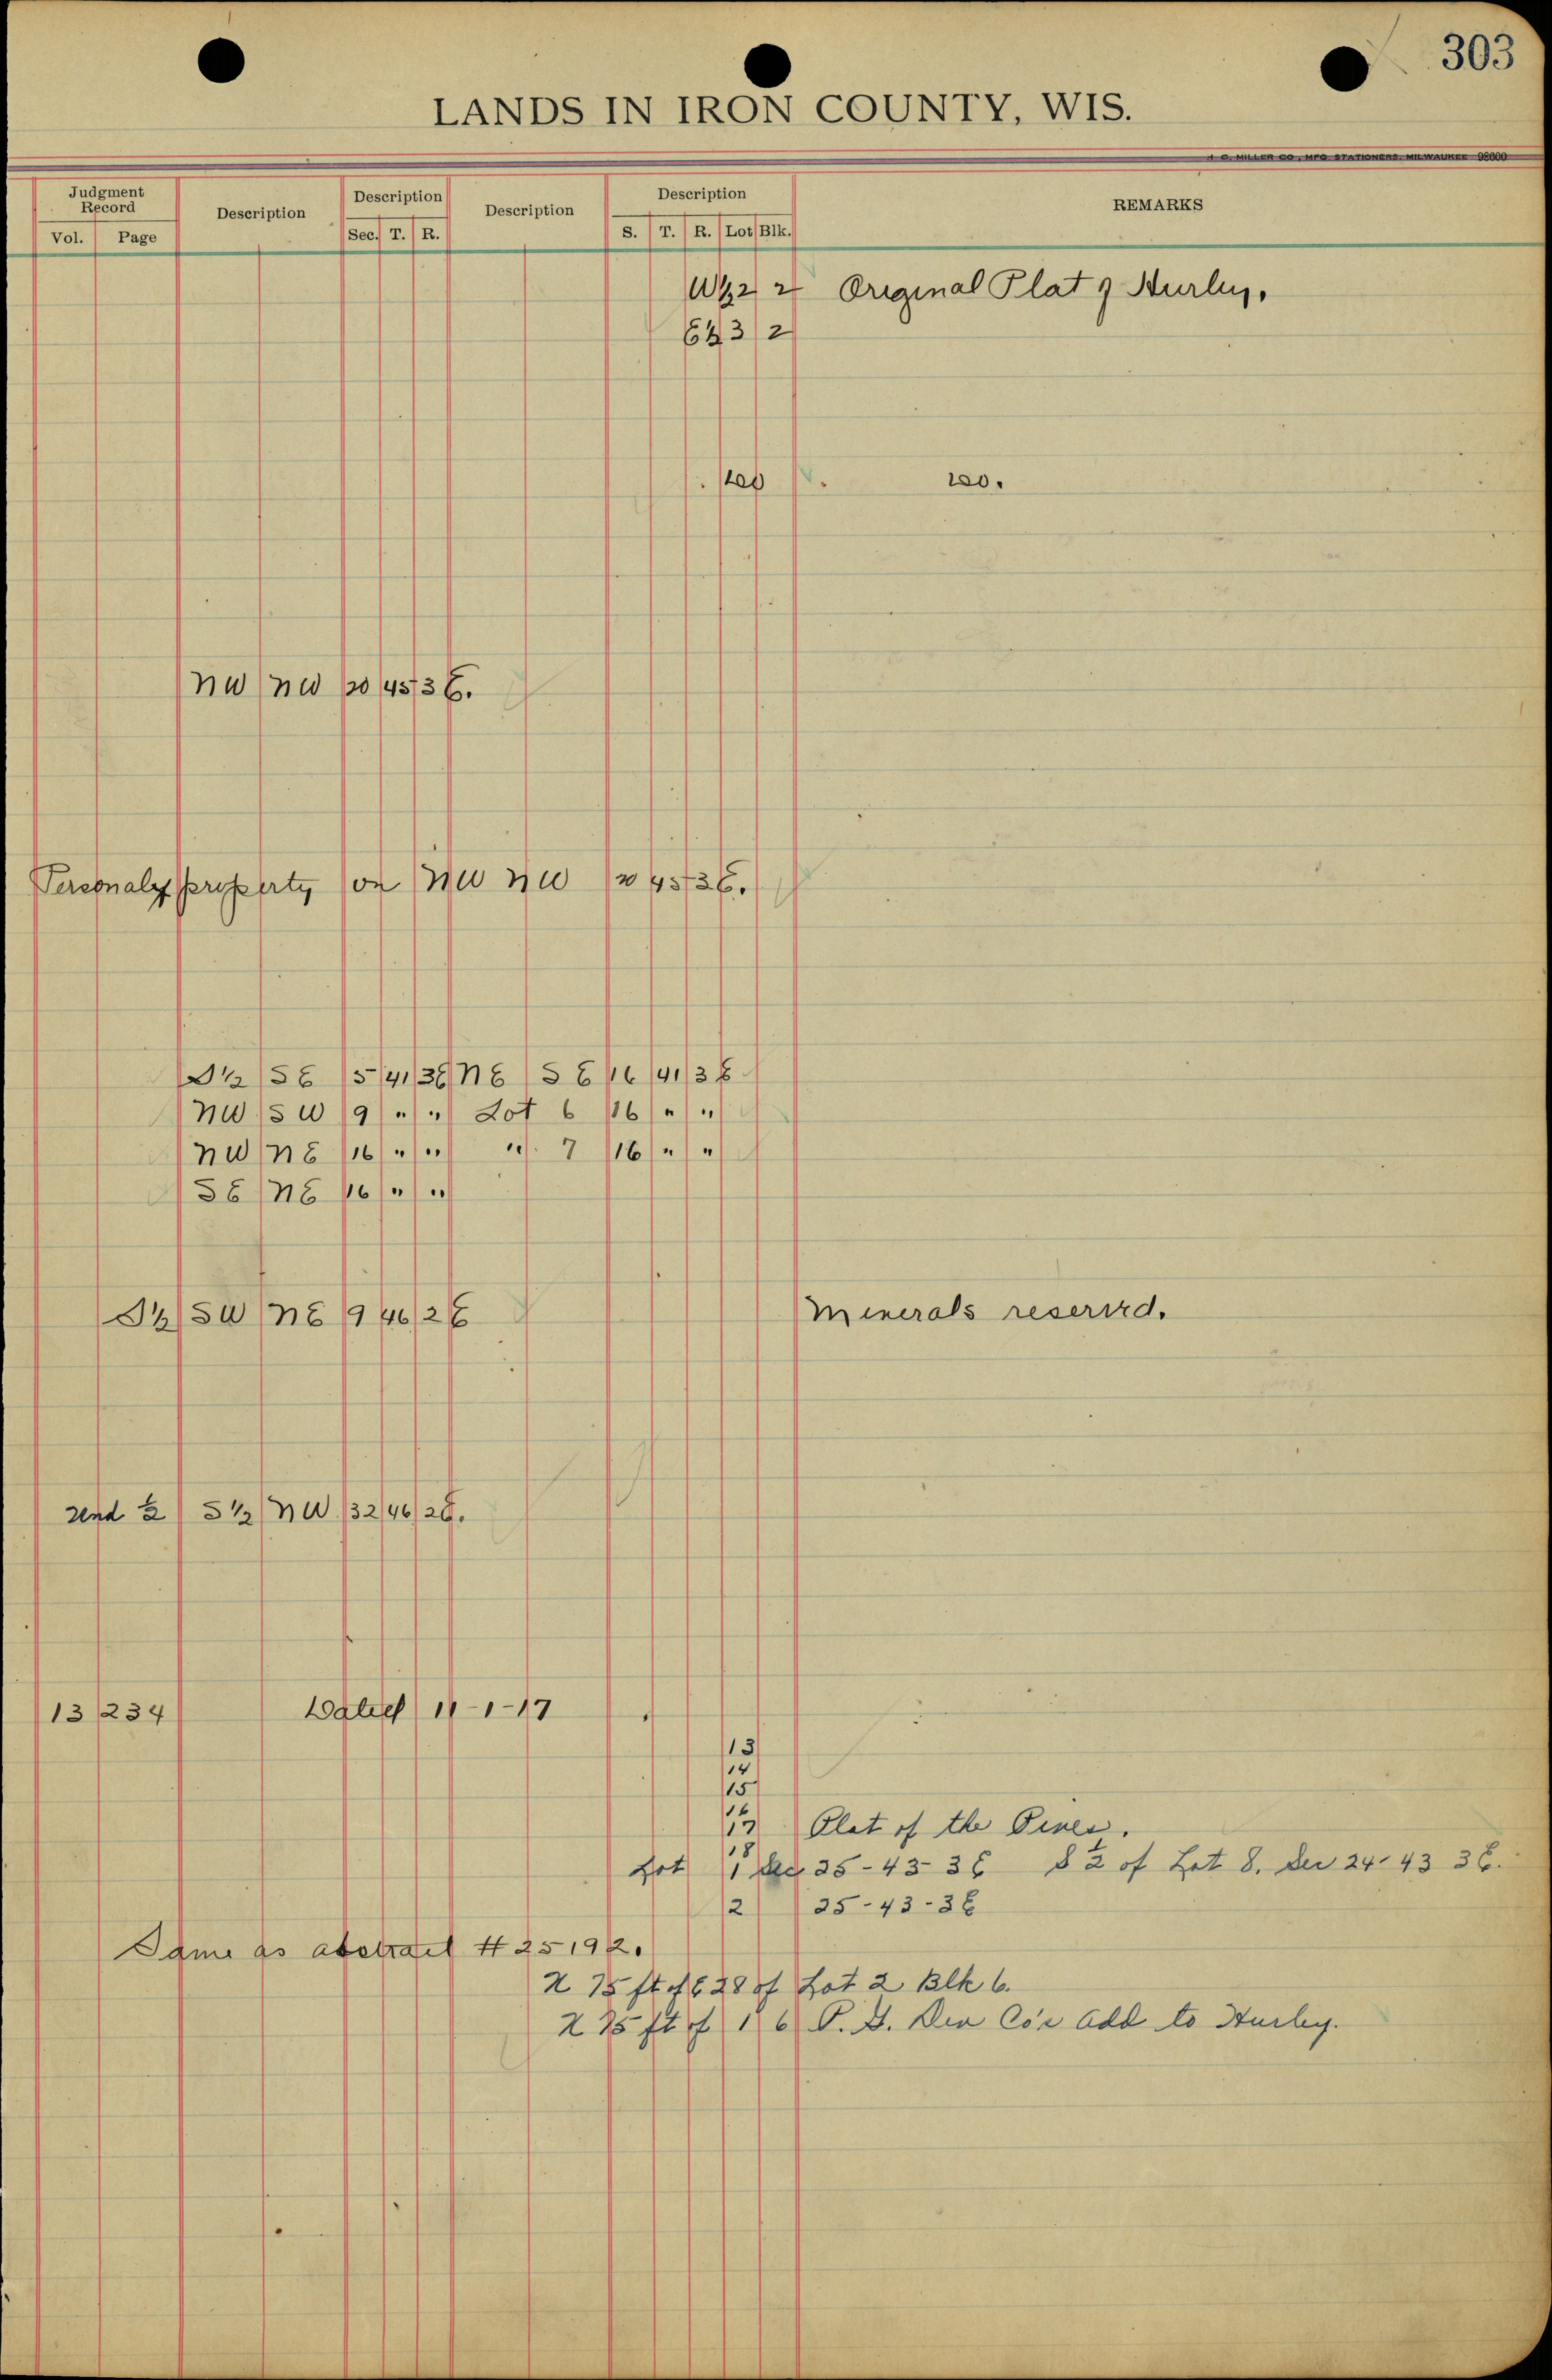 303
LANDS IN IRON COUNTY, WIS.
H. C. MILLER CO., MFG STATIONERS, MILWAUKEE 98600
Judgment Record Description Description Description Description REMARKS
Vol. Page Sec. T. R. S. T. R. Lot Blk.
W½ 2 2 Original Plat of Hurley.
E½ 3 2
100.
NW NW 20 45 3 E.
Personal property on NW NW 20 45 3 E.
S½ SE 5 41 3E NE SE 16 41 3E
NW SW 9 " " Lot 6 16 " "
NW NE 16 " " " 7 16 " "
SE NE 16 " "
S½ SW NE 9 46 2E Minerals reserved.
und ½ S½ NW 32 46 2E.
13 234 Dated 11-1-17
13
14
15
16
17 Plat of the Pines.
18
Lot 1 Sec 25-43-3E S ½ of Lot 8. Sec 24-43 3E.
2 25-43-3E
Same as abstract # 25192.
N 75 ft of E 28 of Lot 2 Blk 6.
N 75 ft of 1 6 P. D. Dev Co's Add to Hurley.